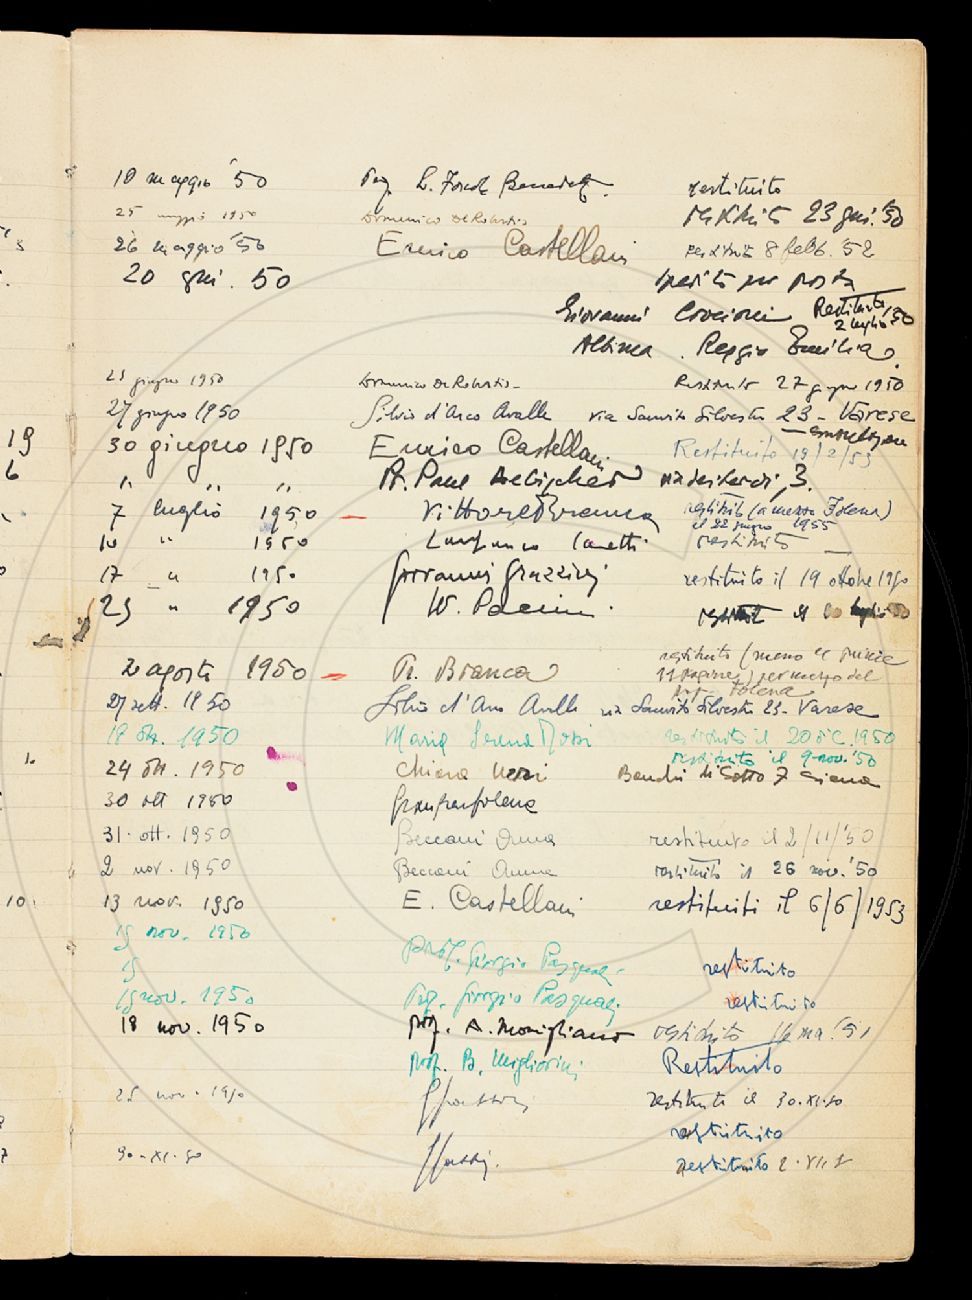 18 maggio '50 Prof. L. Foscolo Benedetto restituito
25 maggio 1950 Domenico De Robertis restituito 23 giu. '50
26 maggio '50 Enrico Castellani restituito 8 febb. '52
20 giu. 50 spedito per posta
Giovanni Crocioni Restituito
2 luglio '50
Albinea . Reggio Emilia
23 giugno 1950 Domenico De Robertis Restituito 27 giugno 1950
27 giugno 1950 Silvio d'Arco Avalle via San Vito Silvestro 23 - Varese
30 giugno 1950 Enrico Castellani Restituito 19/2/53
" " " P. Paul Aebischer 3.
7 luglio 1950 Vittore Branca restituito (a mezzo Folena)
il 22 giugno 1955
10 " 1950 Lanfranco Caretti restituito
17 " 1950 Giovanni Grazzini restituito il 19 ottobre 1950
23 " 1950 W. Pacini restituito il luglio 50
2 agosto 1950 V. Branca restituito (meno le prime
11 pagine) per mezzo del
prof. Folena
27 sett. 1950 Silvio d'Arco Avalle via San Vito Silvestro 23 - Varese
18 ott. 1950 Maria Serena Mori restituito il 20 dic. 1950
restituito il 9 nov. '50
24 ott. 1950 Chiara Neri Banchi di Sotto 7 Siena
30 ott 1950 Gianfranco Folena
31. ott. 1950 Beccani Anna restituito il 2/11/'50
2 nov. 1950 Beccani Anna restituito il 26 nov. '50
13 nov. 1950 E. Castellani restituiti il 6/6/1953
15 nov. 1950
15 prof. Giorgio Pasquali restituito
15 nov. 1950 Prof. Giorgio Pasquali restituito
18 nov. 1950 prof. A. Momigliano restituito 16 ma. '51
prof. B. Migliorini Restituito
25 nov. 1950 restituito il 30.XI.50
restituito
30.XI.50 restituito